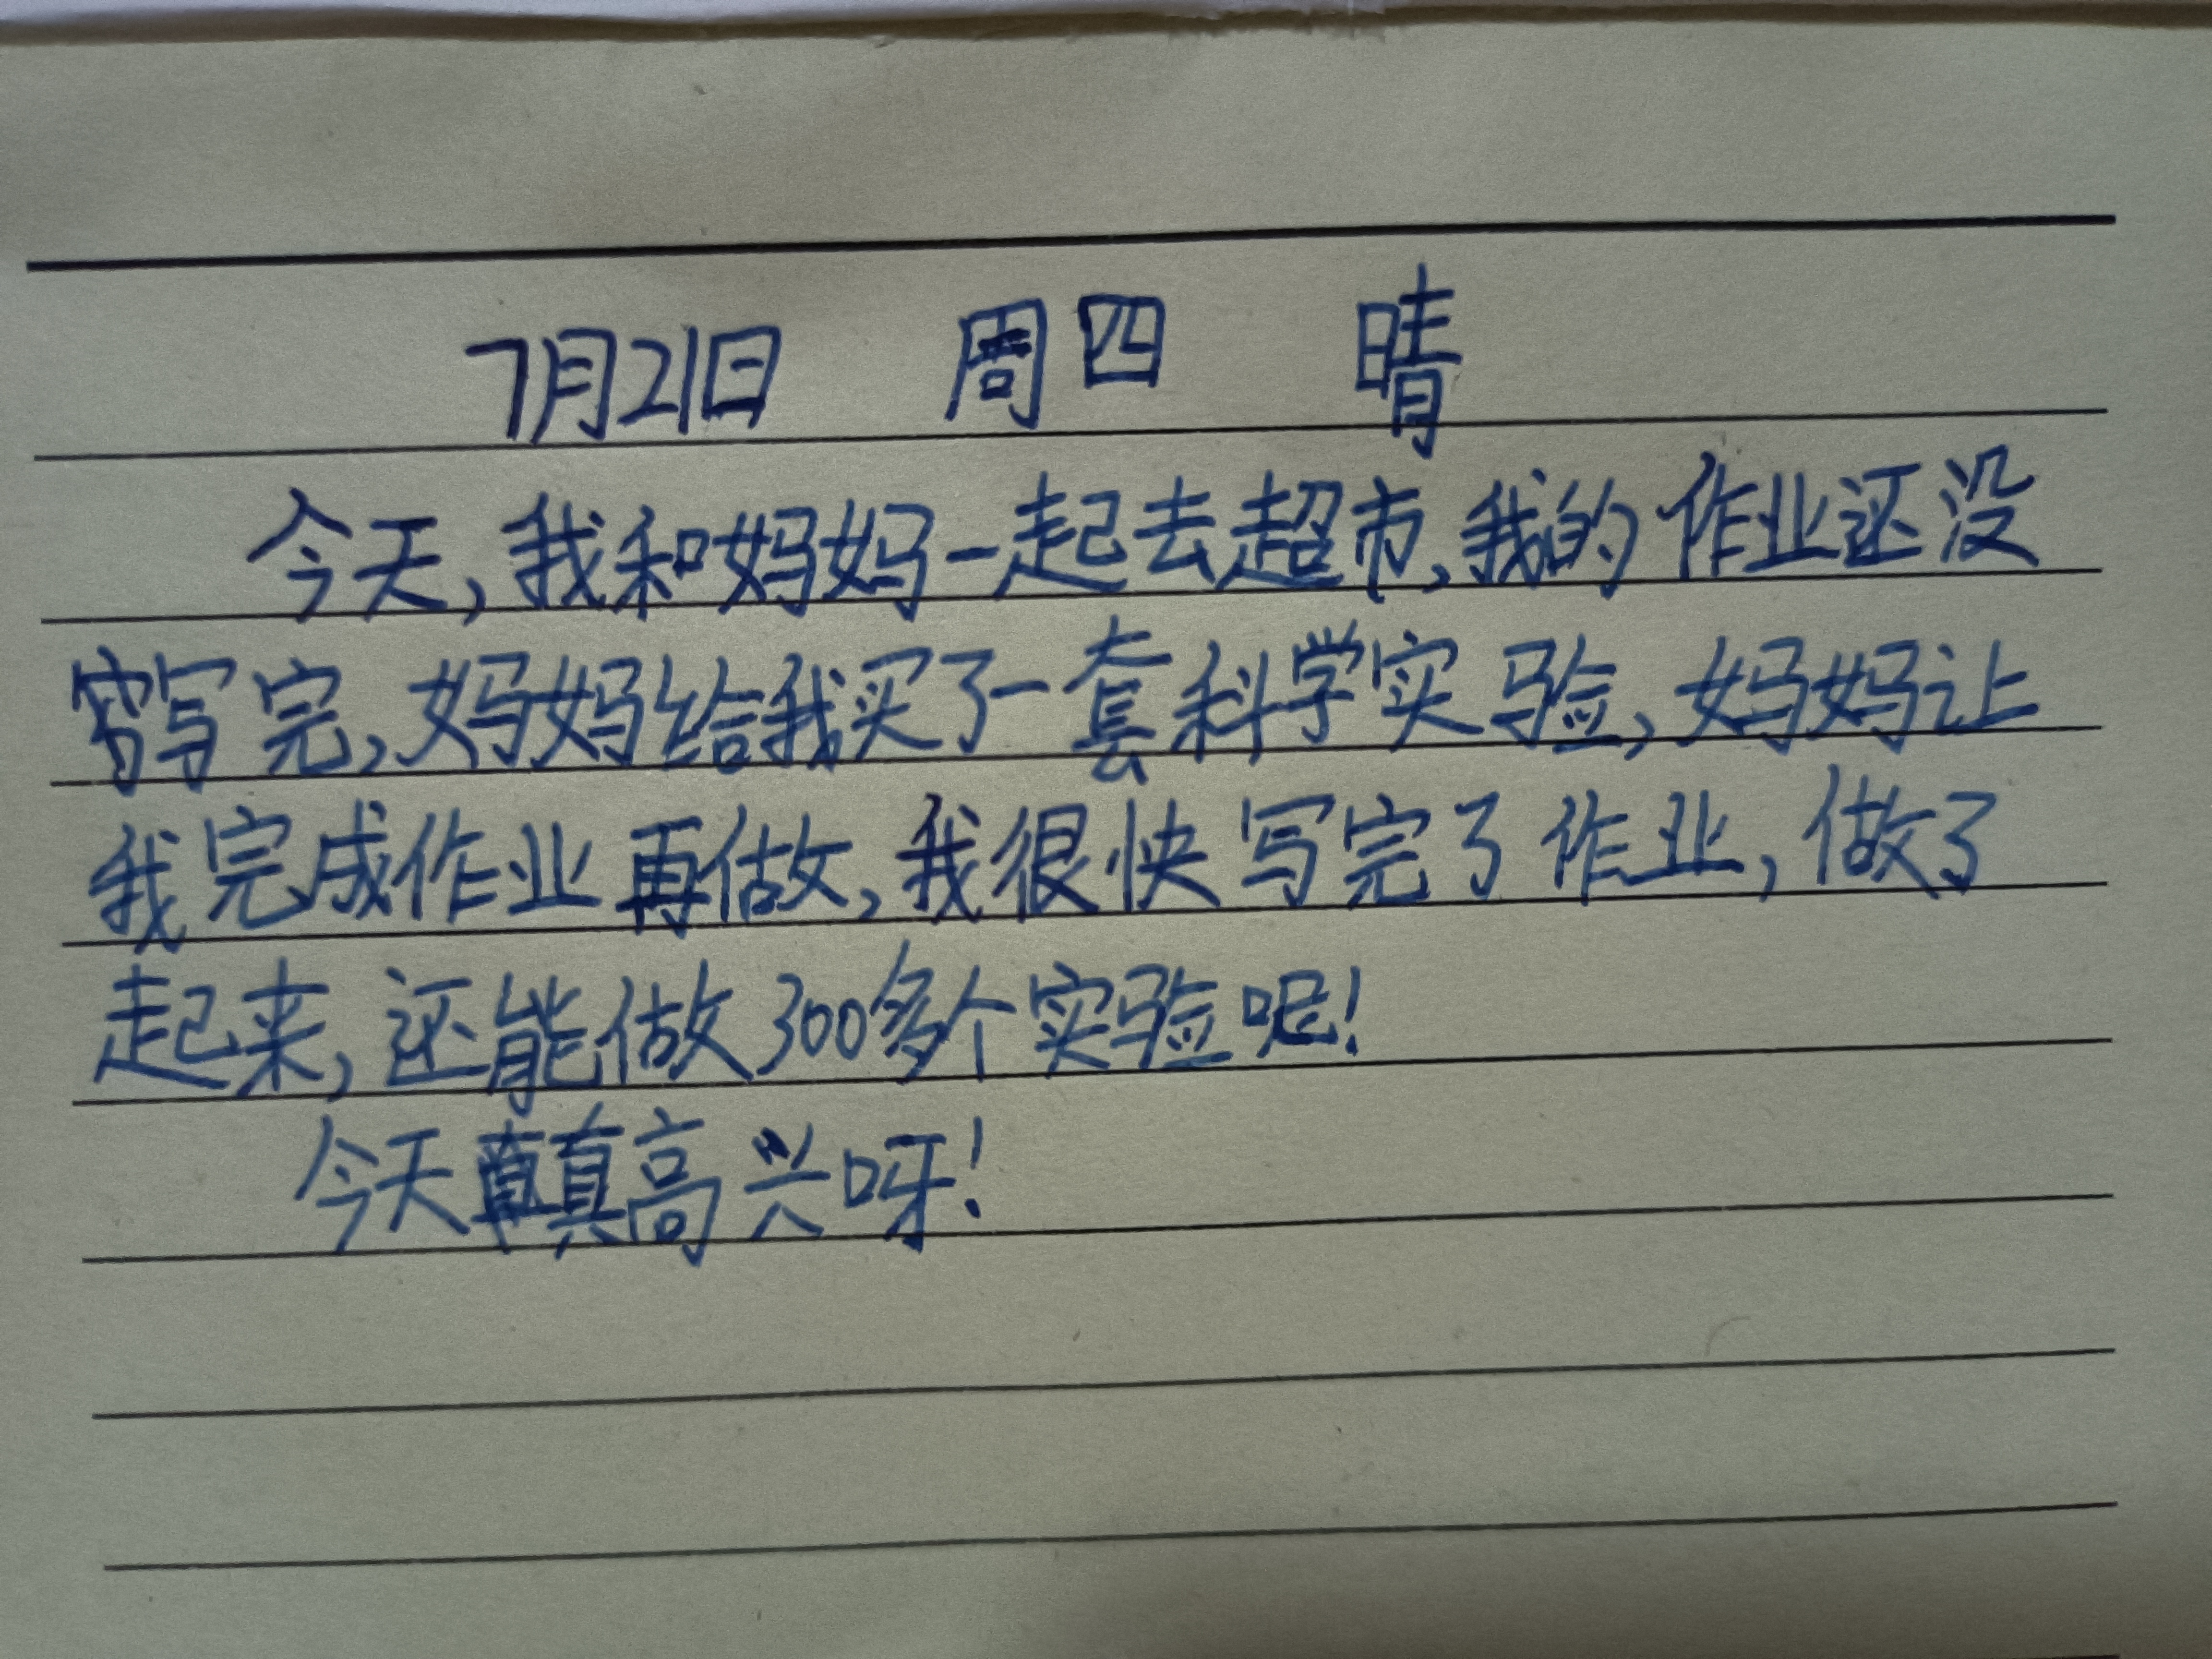 7月21日 周四 晴
今天,我和妈妈一起去超市,我的作业还没
写完,妈妈给我买了一套科学实验,妈妈让
我完成作业再做,我很快写完了作业,做了
起来,还能做300多个实验呢!
今天真高兴呀!